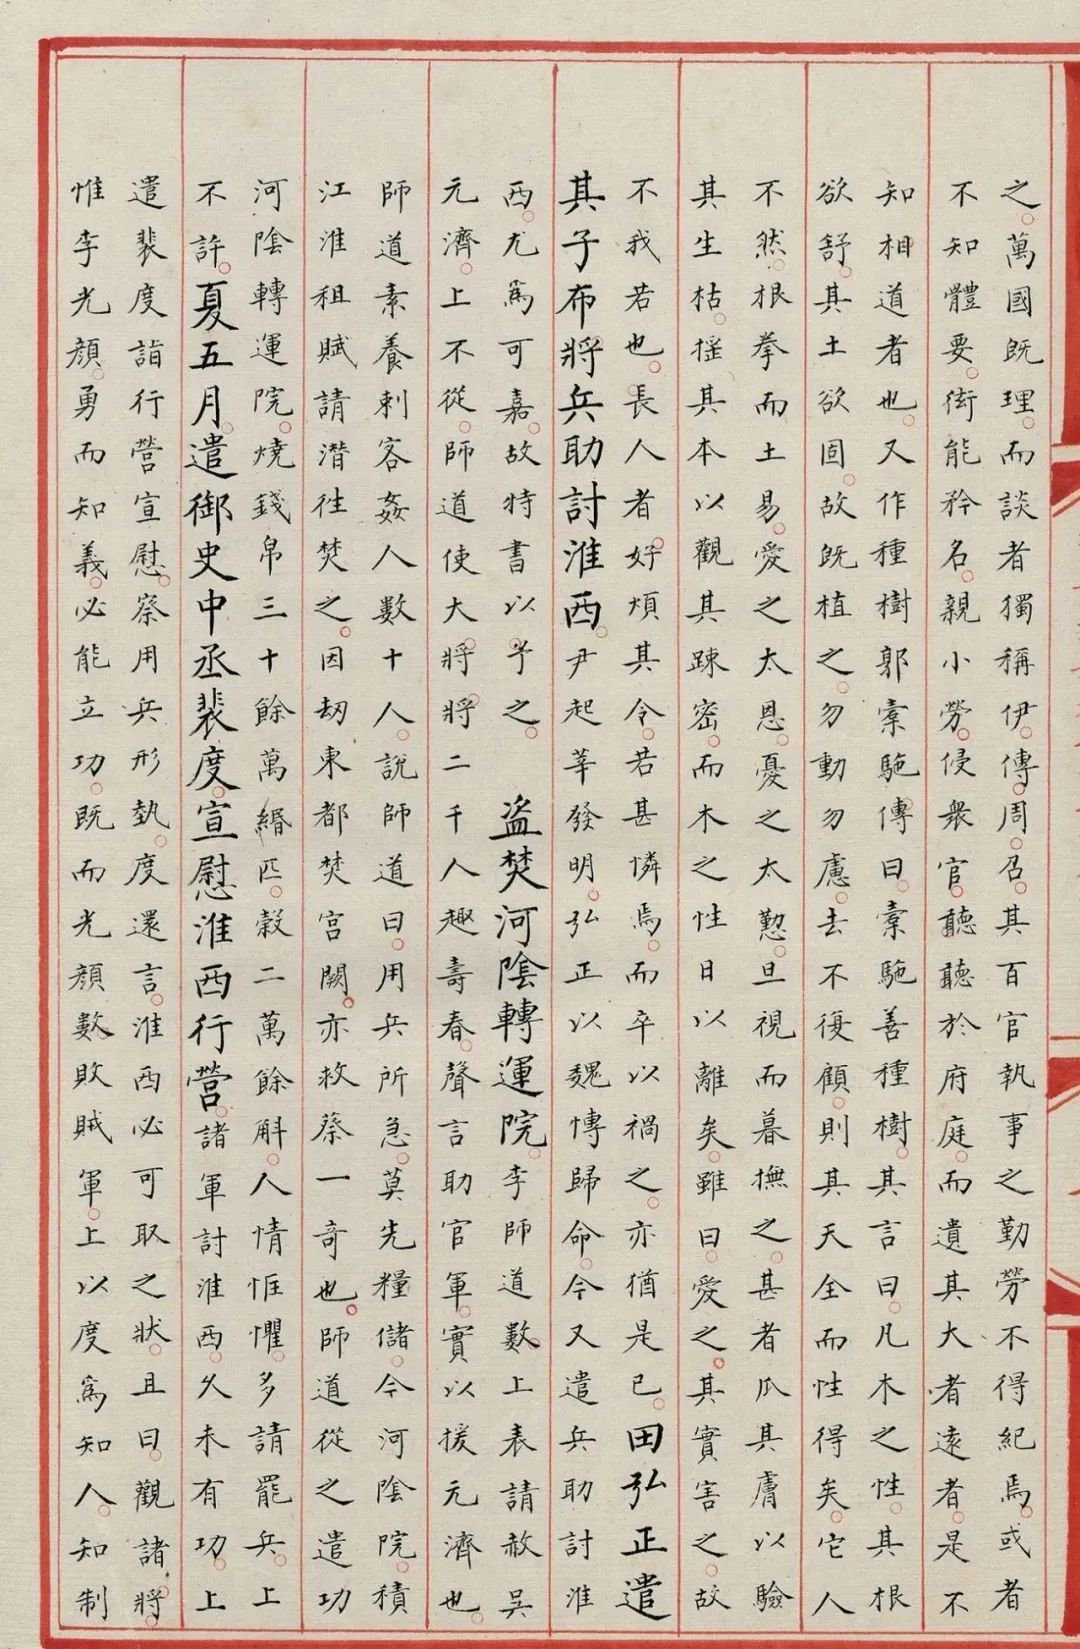 之萬國既理而談者獨稱伊傅周召其百官執事之勤勞不得紀焉或者
不知體要衒能矜名親小勞侵衆官聽聽於府庭而遺其大者遠者是不
知相道者也又作種樹郭橐駞傳曰橐駞善種樹其言曰凡木之性其根
欲舒其土欲固故既植之勿動勿慮去不復顧則其天全而性得矣它人
不然根拳而土易愛之太恩憂之太懃旦視而暮撫之甚者爪其膚以驗
其生枯揺其本以觀其踈密而木之性日以離矣雖曰愛之其實害之故
不我若也長人者好煩其令若甚憐焉而卒以禍之亦猶是已田弘正遣
其子布將兵助討淮西尹起莘發明弘正以魏博歸命今又遣兵助討淮
西尤爲可嘉故特書以予之 盗焚河陰轉運院李師道數上表請赦吳
元濟上不從師道使大將將二千人趣壽春聲言助官軍實以援元濟也
師道素養刺客姦人數十人說師道曰用兵所急莫先糧儲今河陰院積
江淮租賦請潛徃焚之因刼東都焚宫闕亦救蔡一奇也師道從之遣功
河陰轉運院燒錢帛三十餘萬緡匹穀二萬餘斛人情恇懼多請罷兵上
不許夏五月遣御史中丞裴度宣慰淮西行營諸軍討淮西久未有功上
遣裴度詣行營宣慰察用兵形埶度還言淮西必可取之狀且曰觀諸將
惟李光顔勇而知義必能立功既而光顔數敗賊軍上以度爲知人知制